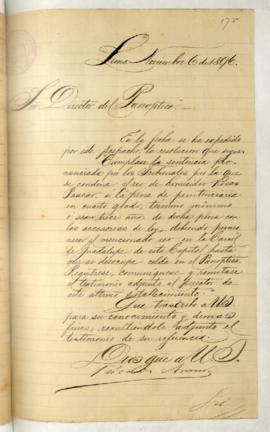 175
Lima Noviembre 6 de 1896.
Sr. Director del Panoptico.
En la fecha se ha expedido
por este despacho, la resolucion que sigue:
Cumplase la sentencia pro-
nunciada por los Tribunales por la que
se condena al reo de homicidio
Paucar a la pena de penitenciaria
en cuarto grado, termino minimo
o sean trece años de dicha pena con
las accesorias de ley, debiendo perma-
necer el mencionado reo en la Carcel
de Guadalupe de esta Capital hasta
que se desocupe celda en el Panoptico.
Registrese, comuniquese y remitase
el testimonio adjunto al Director de
este ultimo establecimiento
Que trascribo a US
para su conocimiento y demas
fines, remitiendole adjunto el
testimonio de su referencia
Dios gue a US.